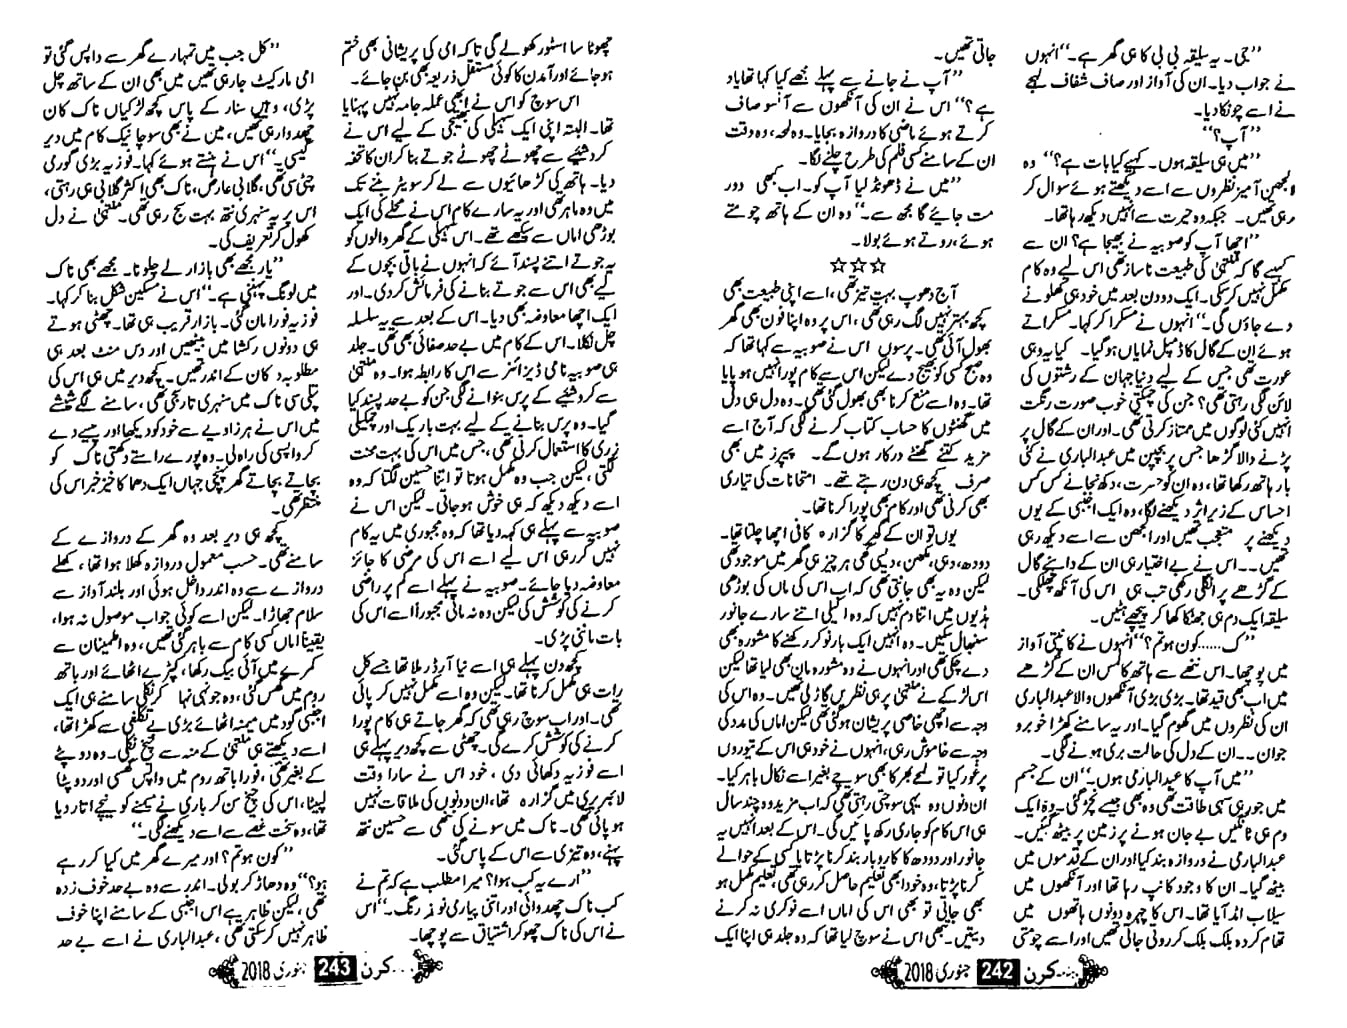 ”جی۔ یہ سلیقہ بی بی کا ہی گھر ہے۔“ انہوں
نے جواب دیا۔ ان کی آواز اور صاف شفاف لہجے
نے اسے چونکا دیا۔
”آپ؟“
”میں ہی سلیقہ ہوں۔ کہیے کیا بات ہے؟“ وہ
الجھن آمیز نظروں سے اسے دیکھتے ہوئے سوال کر
رہی تھیں۔ جبکہ وہ حیرت سے انہیں دیکھ رہا تھا۔
”اچھا آپ کو صوبیہ نے بھیجا ہے؟ ان سے
کہیے گا کہ ملتقیٰ کی طبیعت ناساز تھی اس لیے وہ کام
مکمل نہیں کر سکی۔ ایک دو دن بعد میں خود ہی کھلونے
دے جاؤں گی۔“ انہوں نے مسکرا کر کہا۔ مسکراتے
ہوئے ان کے گال کا ڈمپل نمایاں ہو گیا۔ کیا یہ وہی
عورت تھی جس کے لیے دنیا جہان کے رشتوں کی
لائن لگی رہتی تھی؟ جن کی چمکتی خوب صورت رنگت
انہیں کئی لوگوں میں ممتاز کرتی تھی۔ اور ان کے گال پر
پڑنے والا گڑھا جس پر بچپن میں عبدالباری نے کئی
بار ہاتھ رکھا تھا، وہ ان کو حسرت، دکھ نجانے کس کس
احساس کے زیر اثر دیکھنے لگا، وہ ایک اجنبی کے یوں
دیکھنے پر متعجب تھیں اور الجھن سے اسے دیکھ رہی
تھیں۔۔۔ اس نے بے اختیار ہی ان کے داہنے گال
کے گڑھے پر انگلی رکھی تب ہی اس کی آنکھ چھلکی۔
سلیقہ ایک دم ہی جھٹکا کھا کر پیچھے ہٹیں۔
”ک...... کون ہو تم؟“ انہوں نے کانپتی آواز
میں پوچھا۔ اس ننھے سے ہاتھ کا لمس ان کے گڑھے
میں اب بھی قید تھا۔ بڑی بڑی آنکھوں والا عبدالباری
ان کی نظروں میں گھوم گیا۔ اور یہ سامنے کھڑا خوبرو
جوان۔۔ ان کے دل کی حالت بری ہونے لگی۔
”میں آپ کا عبدالباری ہوں۔“ ان کے جسم
میں جو رہی سہی طاقت تھی وہ بھی جیسے نچڑ گئی۔ وہ ایک
دم ہی ٹانگیں بے جان ہونے پر زمین پر بیٹھ گئیں۔
عبدالباری نے دروازہ بند کیا اور ان کے قدموں میں
بیٹھ گیا۔ ان کا وجود کانپ رہا تھا اور آنکھوں میں
سیلاب امڈ آیا تھا۔ اس کا چہرہ دونوں ہاتھوں میں
تھام کر وہ بلک بلک کر روتی جاتی تھیں اور اسے چومتی
جاتی تھیں۔
”آپ نے جانے سے پہلے مجھے کیا کہا تھا یاد
ہے؟“ اس نے ان کی آنکھوں سے آنسو صاف
کرتے ہوئے ماضی کا دروازہ بجایا۔ وہ لمحہ، وہ وقت
ان کے سامنے کسی فلم کی طرح چلنے لگا۔
”میں نے ڈھونڈ لیا آپ کو۔ اب کبھی دور
مت جائیے گا مجھ سے۔“ وہ ان کے ہاتھ چومتے
ہوئے، روتے ہوئے بولا۔
☆☆☆
آج دھوپ بہت تیز تھی، اسے اپنی طبیعت بھی
کچھ بہتر نہیں لگ رہی تھی، اس پر وہ اپنا فون بھی گھر
بھول آئی تھی۔ پرسوں اس نے صوبیہ سے کہا تھا کہ
وہ صبح کسی کو بھیج دے لیکن اس سے کام پورا نہیں ہو پایا
تھا۔ وہ اسے منع کرنا بھی بھول گئی تھی۔ وہ دل ہی دل
میں گھنٹوں کا حساب کتاب کرنے لگی کہ آج اسے
مزید کتنے گھنٹے درکار ہوں گے۔ پیپرز میں بھی
صرف کچھ ہی دن رہتے تھے۔ امتحانات کی تیاری
بھی کرنی تھی اور کام بھی پورا کرنا تھا۔
یوں تو ان کے گھر کا گزارہ کافی اچھا چلتا تھا۔
دودھ، دہی، مکھن، دیسی گھی ہر چیز ہی گھر میں موجود تھی
لیکن وہ یہ بھی جانتی تھی کہ اب اس کی ماں کی بوڑھی
ہڈیوں میں اتنا دم نہیں کہ وہ اکیلی اتنے سارے جانور
سنبھال سکیں۔ وہ انہیں ایک بار نوکر رکھنے کا مشورہ بھی
دے چکی تھی اور انہوں نے وہ مشورہ مان بھی لیا تھا لیکن
اس لڑکے نے ملتقیٰ پر ہی نظریں گاڑ لی تھیں۔ وہ اس کی
وجہ سے اچھی خاصی پریشان ہو گئی تھی لیکن اماں کی مدد کی
وجہ سے خاموش رہی، انہوں نے خود ہی اس کے تیوروں
پر غور کیا تو لمحے بھر کا بھی سوچے بغیر اسے نکال باہر کیا۔
ان دنوں وہ یہی سوچتی رہتی تھی کہ اب مزید وہ چند سال
ہی اس کام کو جاری رکھ پائیں گی۔ اس کے بعد انہیں یہ
جانور اور دودھ کا کاروبار بند کرنا پڑتا یا کسی کے حوالے
کرنا پڑتا، وہ خود ابھی تعلیم حاصل کر رہی تھی، تعلیم مکمل ہو
بھی جاتی تو بھی اس کی اماں اسے نوکری نہ کرنے
دیتیں۔ تبھی اس نے سوچ لیا تھا کہ وہ جلد ہی اپنا ایک
کرن 242 جنوری 2018
چھوٹا سا اسٹور کھولے گی تاکہ امی کی پریشانی بھی ختم
ہو جائے اور آمدن کا کوئی مستقل ذریعہ بھی بن جائے۔
اس سوچ کو اس نے ابھی عملہ جامہ نہیں پہنایا
تھا۔ البتہ اپنی ایک سہیلی کی بھتیجی کے لیے اس نے
کروشیے سے چھوٹے چھوٹے جوتے بنا کر ان کا تحفہ
دیا۔ ہاتھ کی کڑھائیوں سے لے کر سویٹر بننے تک
میں وہ ماہر تھی اور یہ سارے کام اس نے محلے کی ایک
بوڑھی اماں سے سیکھے تھے۔ اس سہیلی کے گھر والوں کو
یہ جوتے اتنے پسند آئے کہ انہوں نے باقی بچوں کے
لیے بھی اس سے جوتے بنانے کی فرمائش کر دی۔ اور
ایک اچھا معاوضہ بھی دیا۔ اس کے بعد سے یہ سلسلہ
چل نکلا۔ اس کے کام میں بے حد صفائی بھی تھی۔ جلد
ہی صوبیہ نامی ڈیزائنر سے اس کا رابطہ ہوا۔ وہ ملتقیٰ
سے کروشیے کے پرس بنوانے لگی جن کو بے حد پسند کیا
گیا۔ وہ پرس بنانے کے لیے بہت باریک اور چمکیلی
زری کا استعمال کرتی تھی، جس میں اس کی بہت محنت
لگتی، لیکن جب وہ مکمل ہوتا تو اتنا حسین لگتا کہ وہ
اسے دیکھ دیکھ کہ ہی خوش ہو جاتی۔ لیکن اس نے
صوبیہ سے پہلے ہی کہہ دیا تھا کہ وہ مجبوری میں یہ کام
نہیں کر رہی اس لیے اسے اس کی مرضی کا جائز
معاوضہ دیا جائے۔ صوبیہ نے پہلے اسے کم پر راضی
کرنے کی کوشش کی لیکن وہ نہ مانی مجبوراً اسے اس کی
بات ماننی پڑی۔
کچھ دن پہلے ہی اسے نیا آرڈر ملا تھا جسے کل
رات ہی مکمل کرنا تھا۔ لیکن وہ اسے مکمل نہیں کر پائی
تھی۔ اور اب سوچ رہی تھی کہ گھر جاتے ہی کام پورا
کرنے کی کوشش کرے گی۔ چھٹی سے کچھ دیر پہلے ہی
اسے فوزیہ دکھائی دی، خود اس نے سارا وقت
لائبریری میں گزارہ تھا، ان دونوں کی ملاقات نہیں
ہو پائی تھی۔ ناک میں سونے کی ننھی سے حسین نتھ
پہنے، وہ تیزی سے اس کے پاس گئی۔
”ارے یہ کب ہوا؟ میرا مطلب ہے کہ تم نے
کب ناک چھدوائی اور اتنی پیاری نوز رنگ۔“ اس
نے اس کی ناک چھو کر اشتیاق سے پوچھا۔
”کل جب میں تمہارے گھر سے واپس گئی تو
امی مارکیٹ جا رہی تھیں میں بھی ان کے ساتھ چل
پڑی، وہیں سنار کے پاس کچھ لڑکیاں ناک کان
چھدوا رہی تھیں، میں نے بھی سوچا نیک کام میں دیر
کیسی۔“ اس نے ہنستے ہوئے کہا۔ فوزیہ بڑی گوری
چٹی سی تھی، گلابی عارض، ناک بھی اکثر گلابی ہی رہتی،
اس پر یہ سنہری نتھ بہت سج رہی تھی۔ ملتقیٰ نے دل
کھول کر تعریف کی۔
”یار مجھے بھی بازار لے چلو نا۔ مجھے بھی ناک
میں لونگ پہننی ہے۔“ اس نے مسکین شکل بنا کر کہا۔
فوزیہ فوراً مان گئی۔ بازار قریب ہی تھا۔ چھٹی ہوتے
ہی دونوں رکشا میں بیٹھیں اور دس منٹ بعد ہی
مطلوبہ دکان کے اندر تھیں۔ کچھ دیر میں ہی اس کی
پتلی سی ناک میں سنہری تار سجی تھی، سامنے لگے شیشے
میں اس نے ہر زاویے سے خود کو دیکھا اور پیسے دے
کر واپسی کی راہ لی۔ وہ پورے راستے دکھتی ناک کو
بجاتے بچاتے گھر پہنچی جہاں ایک دھماکا خیز خبر اس کی
منتظر تھی۔
کچھ ہی دیر بعد وہ گھر کے دروازے کے
سامنے تھی۔ حسب معمول دروازہ کھلا ہوا تھا، کھلے
دروازے سے وہ اندر داخل ہوئی اور بلند آواز سے
سلام جھاڑا۔ لیکن اسے کوئی جواب موصول نہ ہوا،
یقیناً اماں کسی کام سے باہر گئی تھیں، وہ اطمینان سے
کمرے میں آئی بیگ رکھا، کپڑے اٹھائے اور باتھ
روم میں گھس گئی، وہ جونہی نہا کر نکلی سامنے ہی ایک
اجنبی گود میں میمنہ اٹھائے بڑی بے تکلفی سے کھڑا تھا،
اسے دیکھتے ہی ملتقیٰ کے منہ سے چیخ نکلی۔ وہ دوپٹے
کے بغیر تھی، فوراً باتھ روم میں واپس گھسی اور دوپٹا
لپیٹا، اس کی چیخ سن کر باری نے میمنے کو نیچے اتار دیا
تھا، وہ سخت غصے سے اسے دیکھنے لگی۔“
”کون ہو تم؟ اور میرے گھر میں کیا کر رہے
ہو؟“ وہ دھاڑ کر بولی۔ اندر سے وہ بے حد خوف زدہ
تھی، لیکن ظاہر ہے اس اجنبی کے سامنے اپنا خوف
ظاہر نہیں کر سکتی تھی، عبدالباری نے اسے بے حد
کرن 243 جنوری 2018